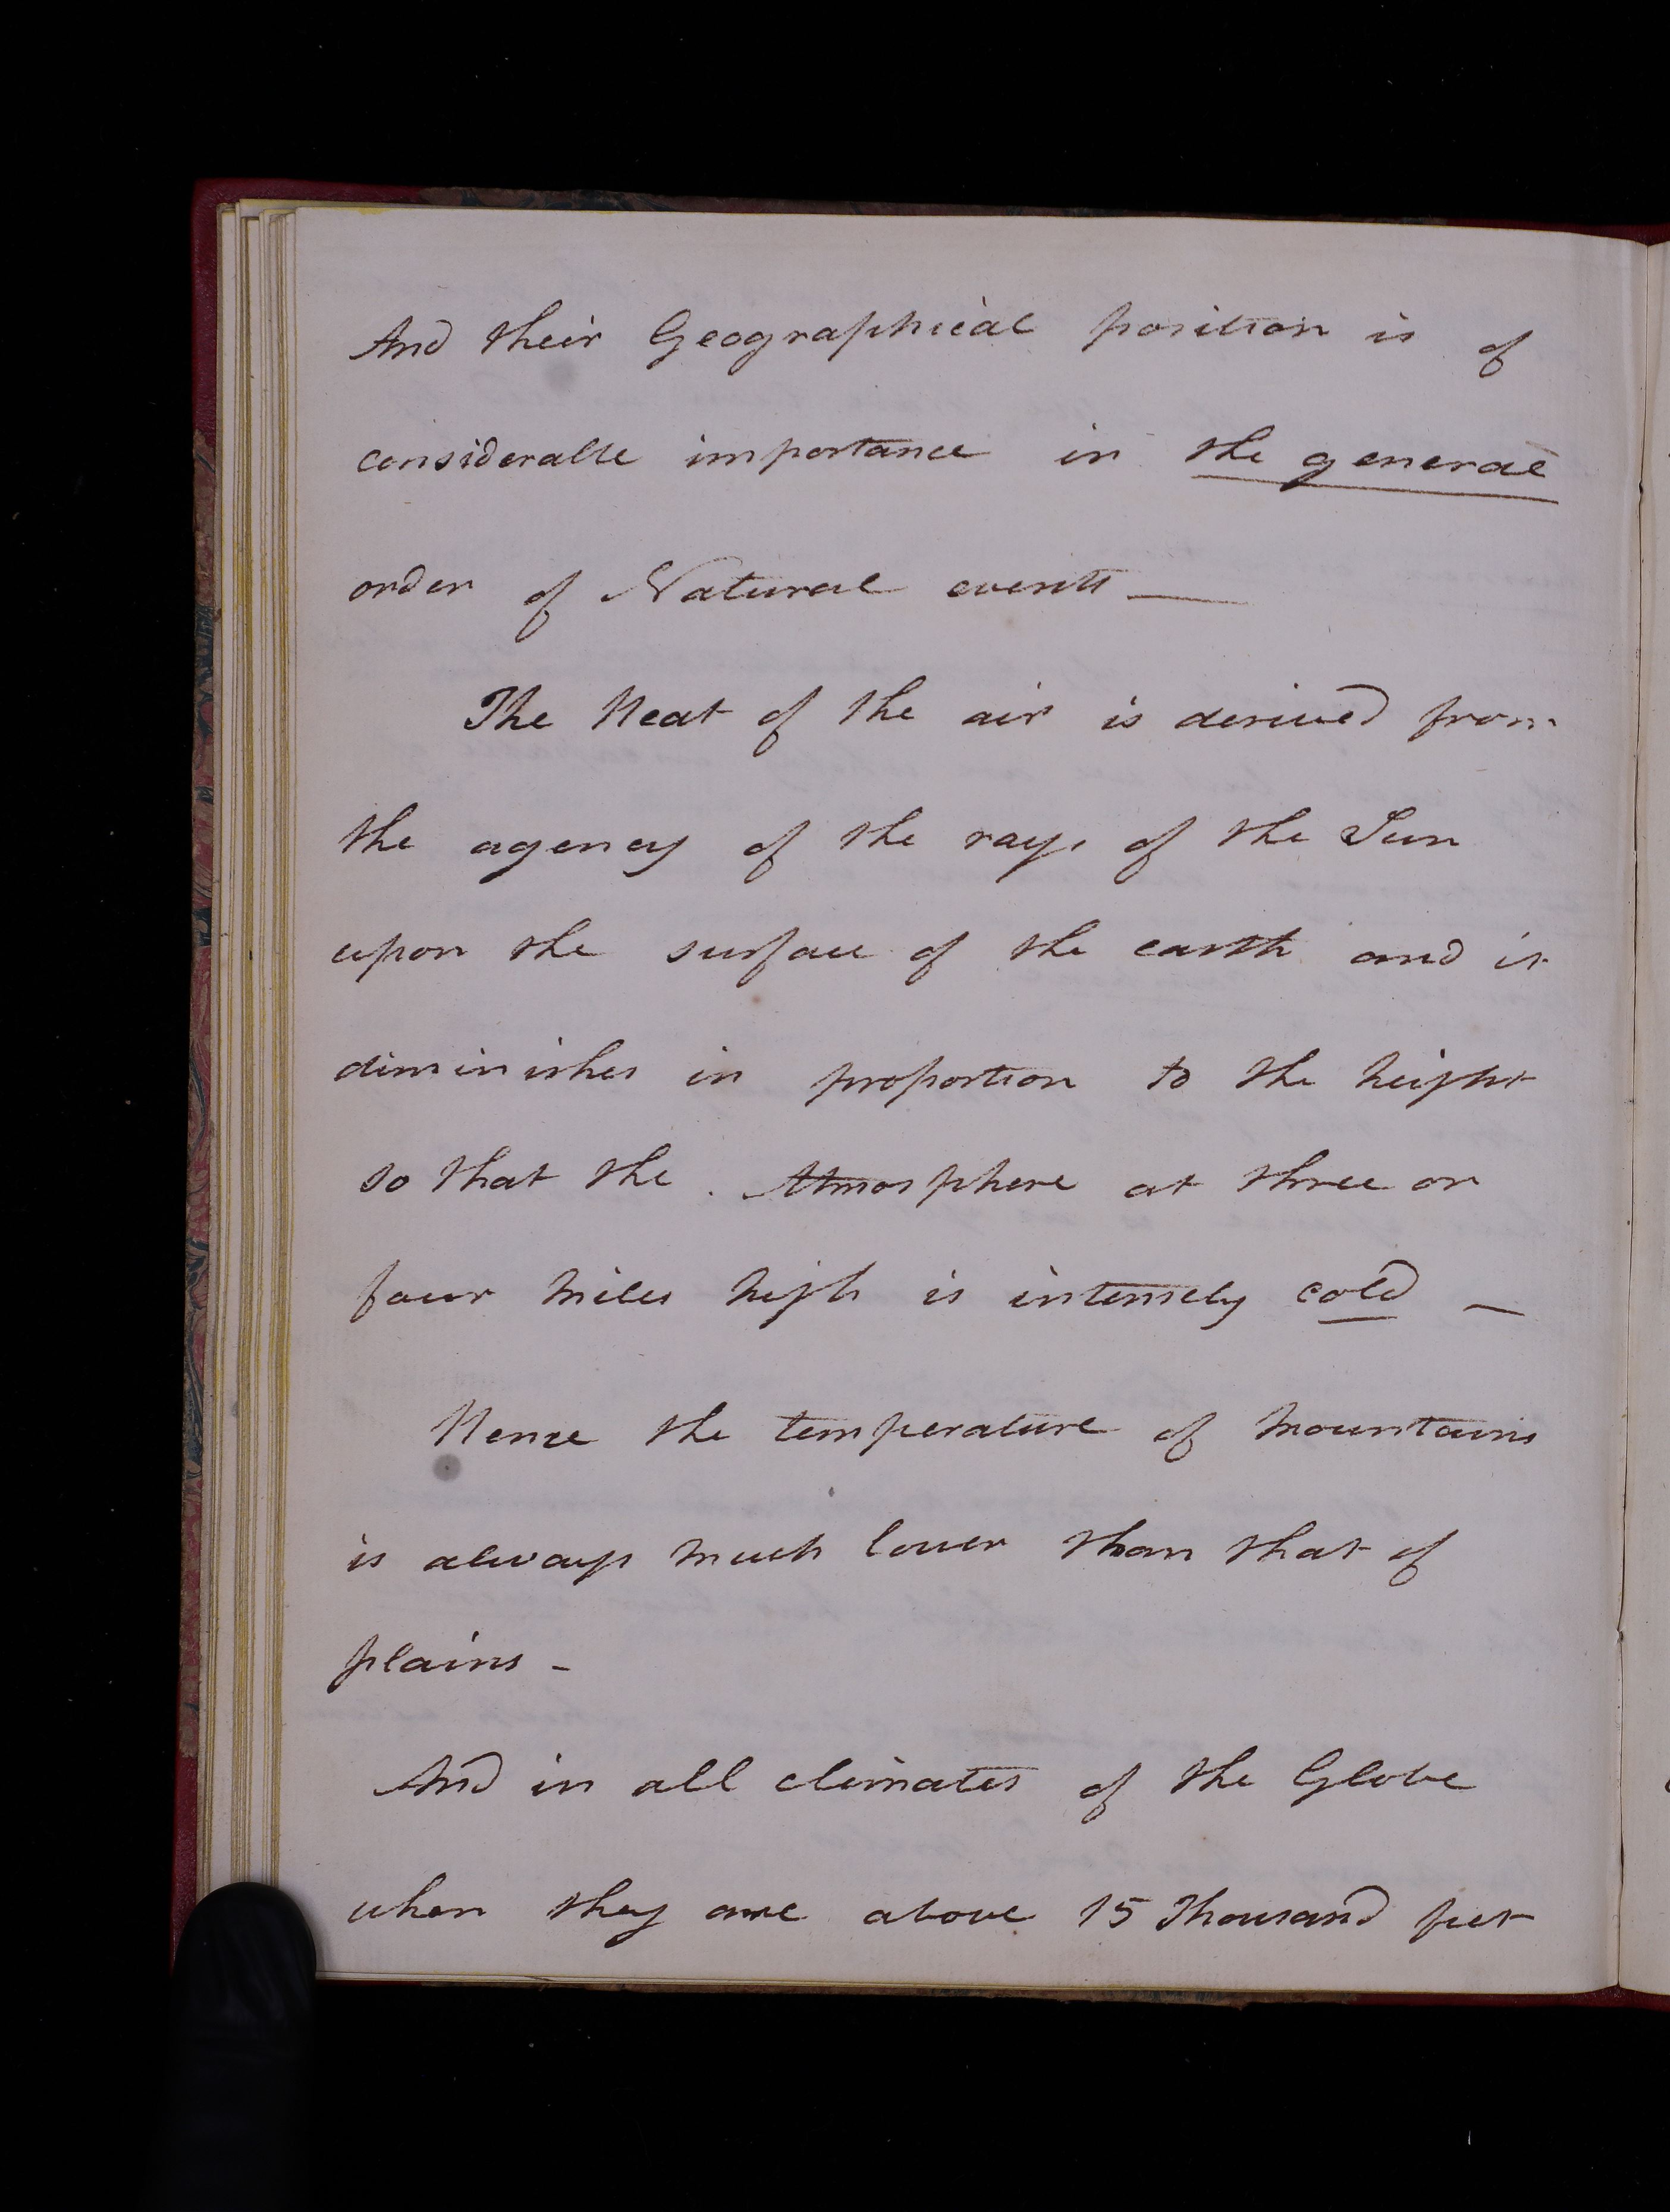 And their Geographical position is of
considerable importance in the general
order of Natural events —
The Heat of the air is derived from
the agency of the rays of the Sun
upon the surface of the earth and it
diminishes in proportion to the height
so that the Atmosphere at three or
four miles high is intensely cold —
Hence the temperature of mountains
is always much lower than that of
plains -
And in all climates of the Globe
when they are above 15 Thousand feet